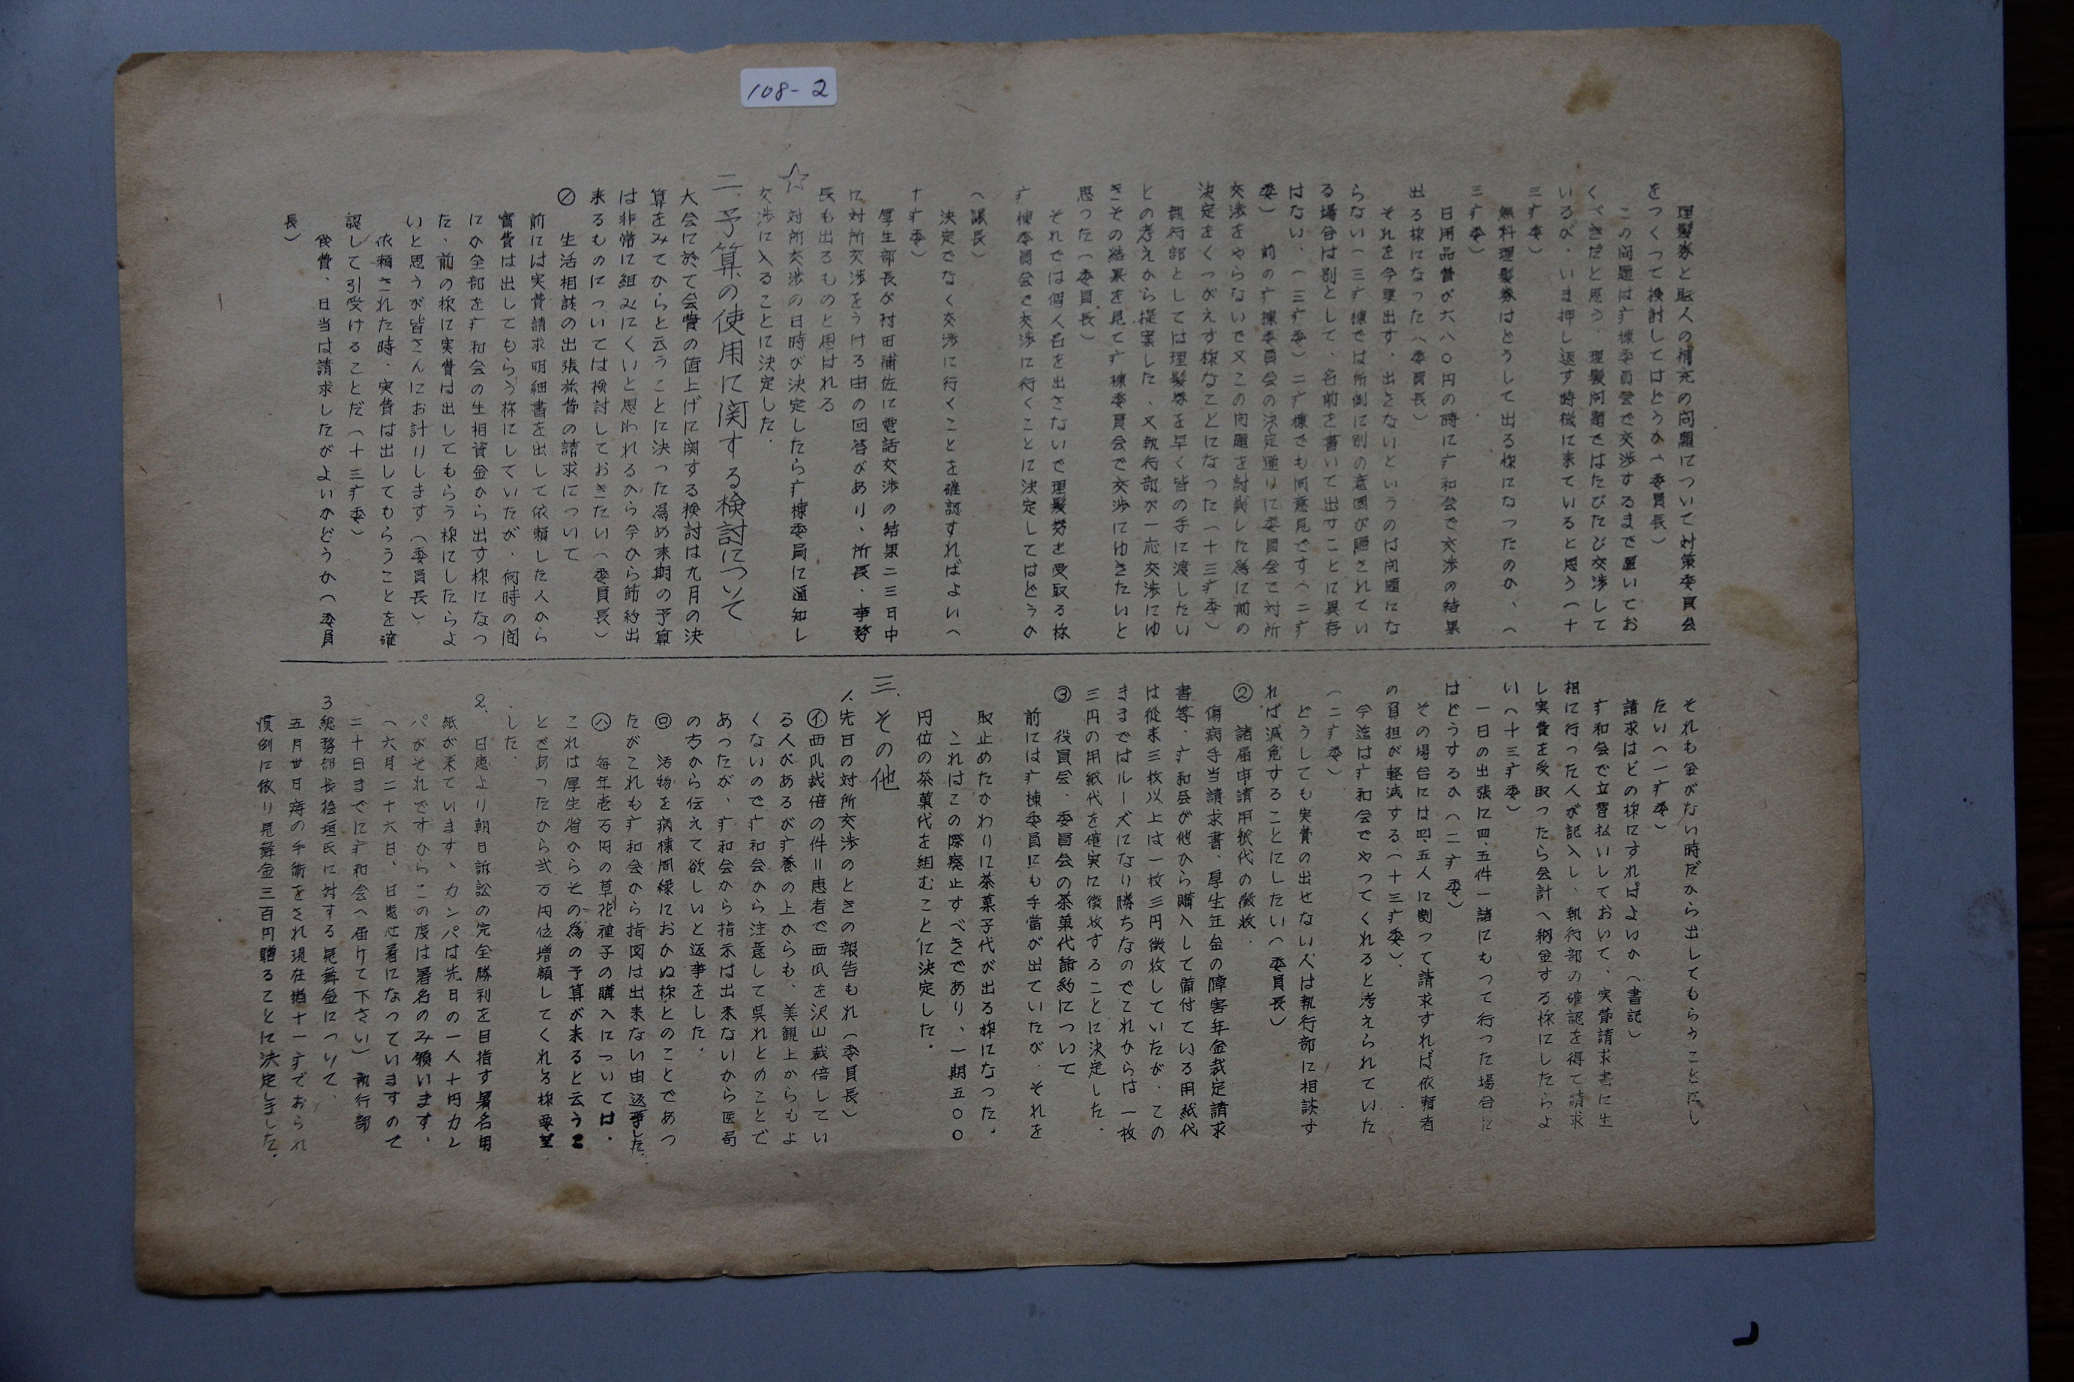 108-2
理髪券と販人の補充の問題について対策委員会
をつくって検討してはどうか(委員長)
この問題は疒棟委員会で交渉するまで置いてお
くべきだと思う、理髪問題ではたびたび交渉して
いるが、いま押し返す時機に来ていると思う(十
三疒委)
無料理髪券はどうして出る様になったのか、(
三疒委)
日用品費が六八〇円の時に疒和会で交渉の結果
出る様になった(委員長)
それを今更出す、出さないというのは問題にな
らない(三疒棟では所側に別の意図が隠されてい
る場合は別として、名前を書いて出すことに異存
はない、(三疒委)二疒棟でも同意見です(二疒
委) 前の疒棟委員会の決定通りに委員会で対所
交渉をやらないで又この問題を討議した為に前の
決定をくつがえす様なことになった(十三疒委)
執行部としては理髪券を早く皆の手に渡したい
との考えから提案した、又執行部が一応交渉にゆ
きその結果を見て疒棟委員会で交渉にゆきたいと
思った(委員長)
それでは個人名を出さないで理髪券を受取る様
疒棟委員会で交渉に行くことに決定してはどうか
(議長)
決定でなく交渉に行くことを確認すればよい(
十疒委)
厚生部長が村田補佐に電話交渉の結果二三日中
に対所交渉をうける由の回答があり、所長、事務
長も出るものと思はれる
☆ 対所交渉の日時が決定したら疒棟委員に通知し
交渉に入ることに決定した.
二.予算の使用に関する検討について
大会に於て会費の値上げに関する検討は九月の決
算をみてからと云うことに決った為め来期の予算
は非常に組みにくいと思われるから今から節約出
来るものについては検討しておきたい(委員長)
① 生活相談の出張旅費の請求について
前には実費請求明細書を出して依頼した人から
實費は出してもらう様にしていたが、何時の間
にか全部を疒和会の生相資金から出す様になっ
た、前の様に実費は出してもらう様にしたらよ
いと思うが皆さんにお計りします(委員長)
依頼された時、実費は出してもらうことを確
認して引受けることだ(十三疒委)
食費、日当は請求したがよいかどうか(委員
長)
それも金がない時だから出してもらうことにし
たい(一疒委)
請求はどの様にすればよいか(書記)
疒和会で立替払いしておいて、実費請求書に生
相に行った人が記入し、執行部の確認を得て請求
し実費を受取ったら会計へ納金する様にしたらよ
い(十三疒委)
一日の出張に四、五件一諸にもって行った場合に
はどうするか(二疒委)
その場合には四、五人に割って請求すれば依頼者
の負担が軽減する(十三疒委)、
今迄は疒和会でやってくれると考えられていた
(二疒委)
どうしても実費の出せない人は執行部に相談す
れば減免することにしたい(委員長)
② 諸届申請用紙代の徴收.
傷病手当請求書、厚生年金の障害年金裁定請求
書等、疒和会が他から購入して備付ている用紙代
は従来三枚以上は一枚三円徴收していたが、この
ままではルーズになり勝ちなのでこれからは一枚
三円の用紙代を確実に徴收することに決定した.
③ 役員会、委員会の茶菓代節約について
前には疒棟委員にも手當が出ていたが、それを
取止めたかわりに茶菓子代が出る様になった。
これはこの際廃止すべきであり、一期五〇〇
円位の茶菓代を組むことに決定した.
三.その他
1.先日の対所交渉のときの報告もれ(委員長)
㋑西瓜裁倍の件=患者で西瓜を沢山裁倍してい
る人があるが疒養の上からも、美観上からもよ
くないので疒和会から注意して呉れとのことで
あったが、疒和会から指示は出来ないから医局
の方から伝えて欲しいと返事をした.
㋺ 汚物を病棟周縁におかぬ様とのことであっ
たがこれも疒和会から指図は出来ない由返事した.
㋩ 毎年壱万円の草花種子の購入については、
これは厚生省からその為の予算が来ると云うこ
とであったから弍万円位増額してくれる様要望
した.
2. 日患より朝日訴訟の完全勝利を目指す署名用
紙が来ています、カンパは先日の一人十円カン
パがそれですからこの度は署名のみ願います、
(六月二十六日、日患必着になっていますので
二十日までに疒和会へ届けて下さい)執行部
3総務部長桧垣氏に対する見舞金について、
五月廿日痔の手術をされ現在猶十一疒でおられ
慣例に依り見舞金三百円贈ることに決定しました.